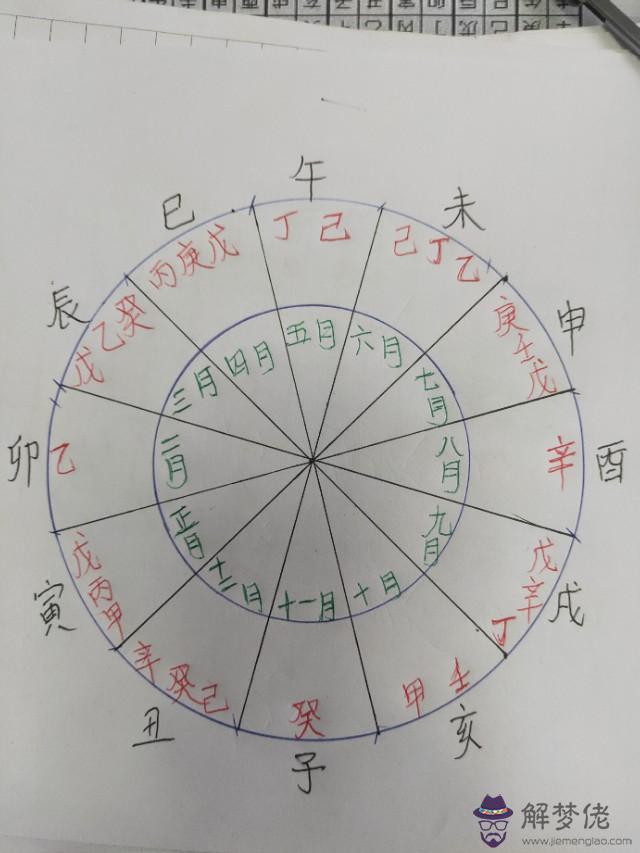 午
未
申
酉
戌
亥
子
丑
寅
卯
辰
巳
丁己
己丁乙
庚壬戊
辛
戊辛丁
甲壬
癸
辛癸己
戊丙甲
乙
戊乙癸
丙庚戊
五月
六月
七月
八月
九月
十月
十一月
十二月
正月
二月
三月
四月
解梦佬
www.jiemenglao.com